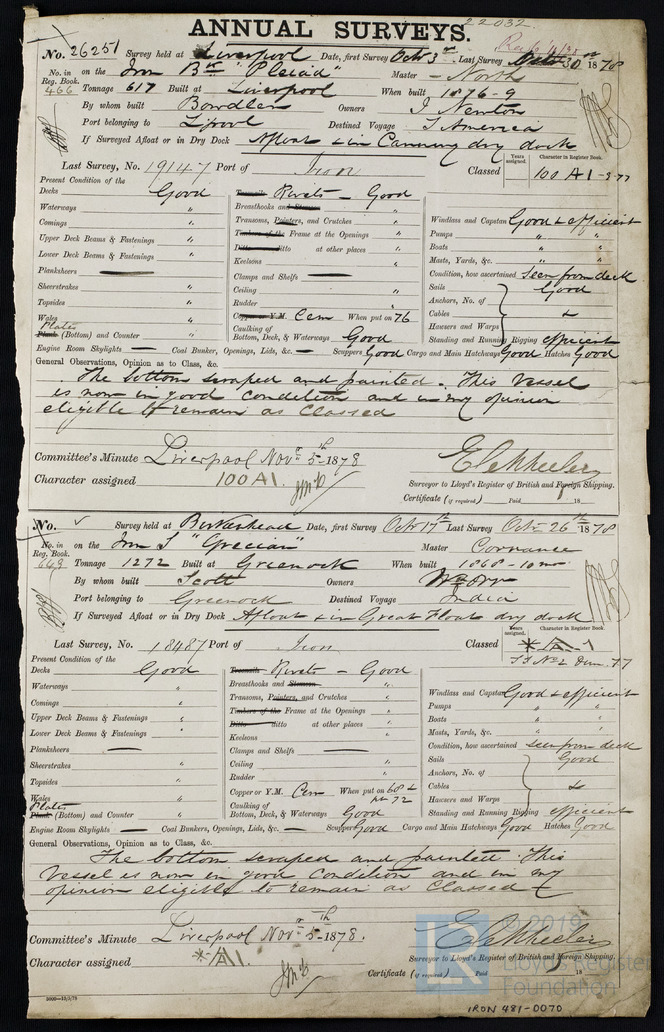 22032
ANNUAL SURVEYS.
No. 26251 Survey held at Liverpool Date, first Survey Octr 3rd Last Survey Octr 30th 1878
No. in Reg. Book. 466 on the Iron Bk "Pleiad" Master North
Tonnage 617 Built at Liverpool When built 1876-9
By whom built Bowdler Owners J. Newton
Port belonging to Lpool Destined Voyage S America
If Surveyed Afloat or in Dry Dock Afloat & in Canning dry dock
Years assigned. Character in Register Book.
Last Survey, No. 19147 Port of Iron Classed 100 A1 -3-77
Present Condition of the
Decks Good Rivets - Good
Waterways " Breasthooks and Stemson "
Comings " Transoms, Pointers, and Crutches "
Upper Deck Beams & Fastenings " Timbers of the Frame at the Openings "
Lower Deck Beams & Fastenings " Ditto ditto at other places "
Planksheers — Keelsons "
Sheerstrakes " Clamps and Shelfs —
Topsides " Ceiling "
Wales " Rudder "
Plates Plank (Bottom) and Counter " Copper or Y.M. Cem When put on 76
Caulking of Bottom, Deck, & Waterways Good
Windlass and Capstan Good & efficient
Pumps " "
Boats " "
Masts, Yards, &c. " "
Condition, how ascertained Seen from deck
Sails Good
Anchors, No. of
Cables &
Hawsers and Warps
Standing and Running Rigging efficient
Engine Room Skylights — Coal Bunker, Openings, Lids, &c. — Scuppers Good Cargo and Main Hatchways Good Hatches Good
General Observations, Opinion as to Class, &c.
The bottom scraped and painted. This Vessel
is now in good condition and in my opinion
eligible to remain as Classed
Committee's Minute Liverpool Novr 5th 1878
Character assigned 100 A1.
E C Wheeler
Surveyor to Lloyd's Register of British and Foreign Shipping.
Certificate (if required) Paid 18
No. Survey held at Birkenhead Date, first Survey Octr 17th Last Survey Octr 26th 1878
No. in Reg. Book. 649 on the Iron S "Grecian" Master
Tonnage 1272 Built at Greenock When built 1868-10mo
By whom built Scott Owners
Port belonging to Greenock Destined Voyage India
If Surveyed Afloat or in Dry Dock Afloat & in Great Float dry dock
Years assigned. Character in Register Book.
Last Survey, No. 18487 Port of Iron Classed A1
Present Condition of the
Decks Good Rivets - Good
Waterways " Breasthooks and Stemson "
Comings " Transoms, Pointers, and Crutches "
Upper Deck Beams & Fastenings " Timbers of the Frame at the Openings "
Lower Deck Beams & Fastenings " Ditto ditto at other places "
Planksheers — Keelsons "
Sheerstrakes " Clamps and Shelfs —
Topsides " Ceiling "
Wales " Rudder "
Plates Plank (Bottom) and Counter " Copper or Y.M. Cem When put on 68 & pt 72
Caulking of Bottom, Deck, & Waterways Good
Windlass and Capstan Good & efficient
Pumps " "
Boats " "
Masts, Yards, &c. " "
Condition, how ascertained seen from deck
Sails Good
Anchors, No. of
Cables &
Hawsers and Warps
Standing and Running Rigging efficient
Engine Room Skylights — Coal Bunkers, Openings, Lids, &c. — Scuppers Good Cargo and Main Hatchways Good Hatches Good
General Observations, Opinion as to Class, &c.
The bottom scraped and painted This
Vessel is now in good condition and in my
opinion eligible to remain as Classed
Committee's Minute Liverpool Novr 5th 1878.
Character assigned A1.
E C Wheeler
Surveyor to Lloyd's Register of British and Foreign Shipping.
Certificate (if required) Paid 18
© 2019
Lloyd's Register
Foundation
IRON 481-0070